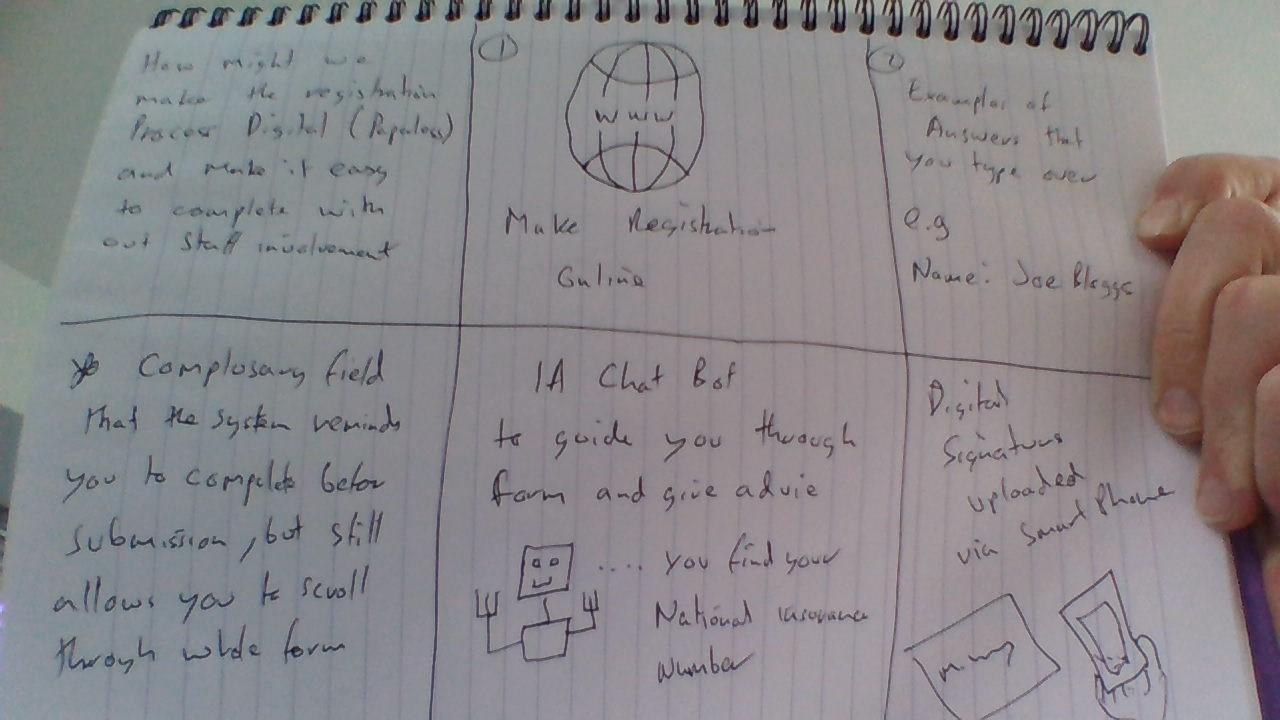 How might we
make the registration
Process Digital (Paperless)
and make it easy
to complete with
out staff involvement
1
www
Make Registration
Online
2
Examples of
Answers that
you type over
e.g
Name: Joe Bloggs
* Complusary field
that the system reminds
you to complete befor
submission, but still
allows you to scroll
through whole form
IA Chat Bot
to guide you through
form and give advie
.... you find your
National insurance
number
Digital
Signature
uploaded
via Smart Phone